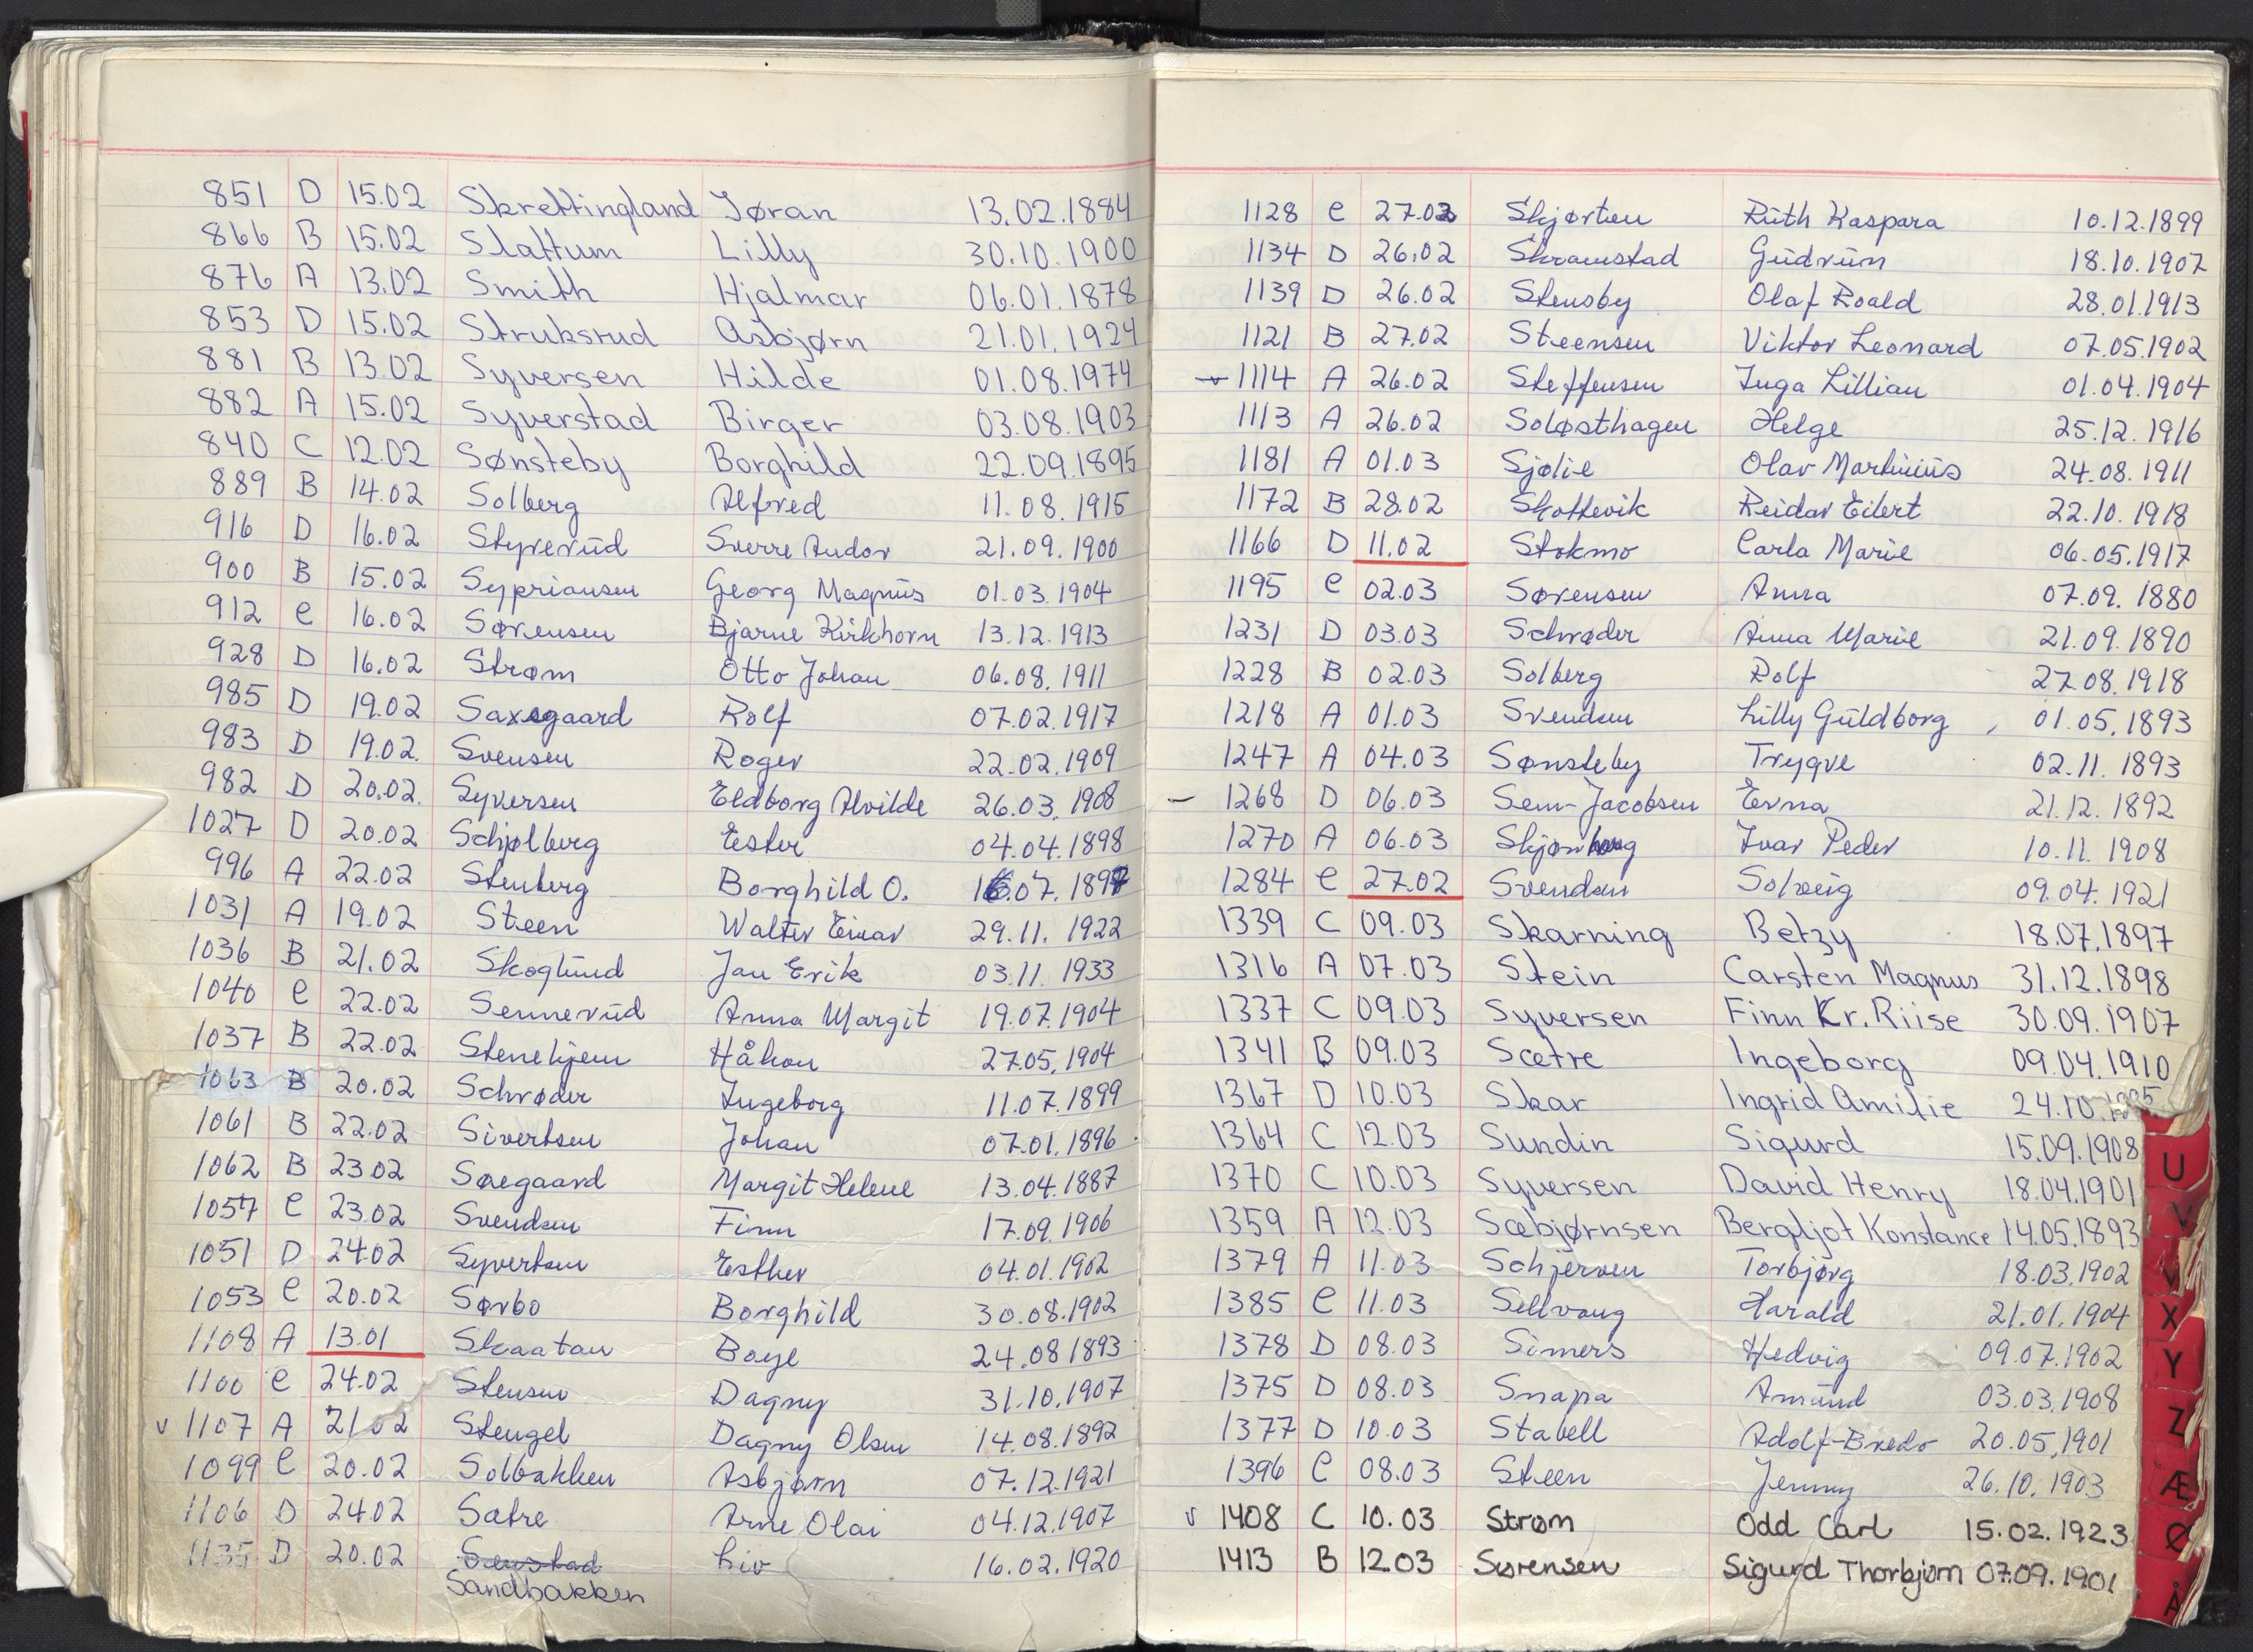 851 D 15.02 Skrettingland Jøran 13.02.1884
866 B 15.02 Slattum Lilly 30.10.1900
876 A 13.02 Smith Hjalmar 06.01.1878
853 D 15.02 Struksrud Asbjørn 21.01.1924
881 B 13.02 Syversen Hilde 01.08.1974
882 A 15.02 Syverstad Birger 03.08.1903
840 C 12.02 Sønsteby Borghild 22.09.1895
889 B 14.02 Solberg Alfred 11.08.1915
916 D 16.02 Styrerud Sverre Andor 21.09.1900
900 B 15.02 Sypriansen Georg Magnus 01.03.1904
912 C 16.02 Sørensen Bjarne Kirkhorn 13.12.1913
928 D 16.02 Strøm Otto Johan 06.08.1911
985 D 19.02 Saxegaard Rolf 07.02.1917
983 D 19.02. Svensen Roger 22.02.1909
982 D 20.02. Syversen Eldborg Alvilde 26.03.1908
1027 D 20.02 Schjølberg Ester 04.04.1898
996 A 22.02 Stenberg Borghild O. 16.07.1897
1031 A 19.02 Steen Walter Einar 29.11.1922
1036 B 21.02 Skoglund Jan Erik 03.11.1933
1040 C 22.02 Sennerud Anna Margit 19.07.1904
1037 B 22.02 Stenehjem Håkon 27.05.1904
1063 B 20.02 Schrøder Ingeborg 11.07.1899
1061 B 22.02 Sivertsen Johan 07.01.1896
1062 B 23.02 Søegaard Margit Helene 13.04.1887
1057 C 23.02 Svendsen Finn 17.09.1906
1051 D 24.02 Syvertsen Esther 04.01.1902
1053 C 20.02 Sørbo Borghild 30.08.1902
1108 A 13.01 Skaatan Boye 24.08.1893
1100 C 24.02 Stensen Dagny 31.10.1907
v 1107 A 21.02 Stengel Dagny Olsen 14.08.1892
1099 C 20.02 Solbakken Asbjørn 07.12.1921
1106 D 24.02 Satre Arne Olai 04.12.1907
1135 D 20.02 Liv 16.02.1920
Sandbakken
1128 C 27.02 Skjorten Ruth Kaspara 10.12.1899
1134 D 26.02 Skramstad Gudrun 18.10.1907
1139 D 26.02 Stensby Olaf Roald 28.01.1913
1121 B 27.02 Steensen Viktor Leonard 07.05.1902
v 1114 A 26.02 Steffensen Inga Lillian 01.04.1904
1113 A 26.02 Soløsthagen Helge 25.12.1916
1181 A 01.03 Sjølie Olav Martinius 24.08.1911
1172 B 28.02 Skottevik Reidar Eilert 22.10.1918
1166 D 11.02 Stokmo Carla Marie 06.05.1917
1195 C 02.03 Sørensen Anna 07.09.1880
1231 D 03.03 Schrøder Anna Marie 21.09.1890
1228 B 02.03 Solberg Rolf 27.08.1918
1218 A 01.03 Svendsen Lilly Guldborg 01.05.1893
1247 A 04.03 Sønsteby Trygve 02.11.1893
– 1268 D 06.03 Sem-Jacobsen Erna 21.12.1892
1270 A 06.03 Ivar Peder 10.11.1908
1284 C 27.02 Svendsen Solveig 09.04.1921
1339 C 09.03 Skarning Betzy 18.07.1897
1316 A 07.03 Stein Carsten Magnus 31.12.1898
1337 C 09.03 Syversen Finn Kr. Riise 30.09.1907
1341 B 09.03 Sætre Ingeborg 09.04.1910
1367 D 10.03 Skar Ingrid Amilie 24.10.
1364 C 12.03 Sundin Sigurd 15.09.1908
1370 C 10.03 Syversen David Henry 18.04.1901
1359 A 12.03 Sæbjørnsen Bergljot Konstance 14.05.1893
1379 A 11.03 Schjerven Torbjørg 18.03.1902
1385 C 11.03 Sellvaag Harald 21.01.1904
1378 D 08.03 Simers Hedvig 09.07.1902
1375 D 08.03 Snapa Amund 03.03.1908
1377 D 10.03 Stabell Adolf-Bredo 20.05.1901
1396 C 08.03 Steen Jenny 26.10.1903
v 1408 C 10.03 Strøm Odd Carl 15.02.1923
1413 B 12.03 Sørensen Sigurd Thorbjørn 07.09.1901
U
V
X
Y
Z
Æ
Ø
Å